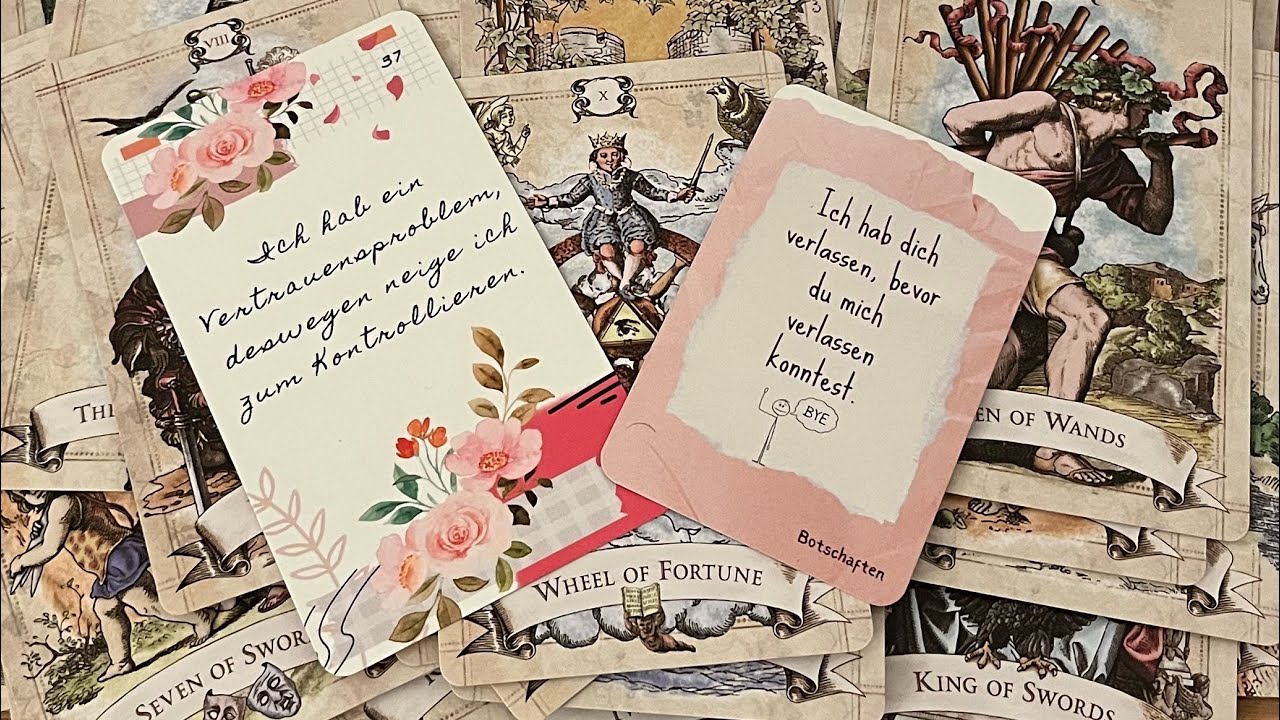 VIII
37
Ich hab ein
Vertrauensproblem,
deswegen neige ich
zum Kontrollieren.
X
Ich hab dich
verlassen, bevor
du mich
verlassen
konntest.
BYE
Botschaften
WHEEL OF FORTUNE
OF WANDS
SEVEN OF
KING OF SWORDS